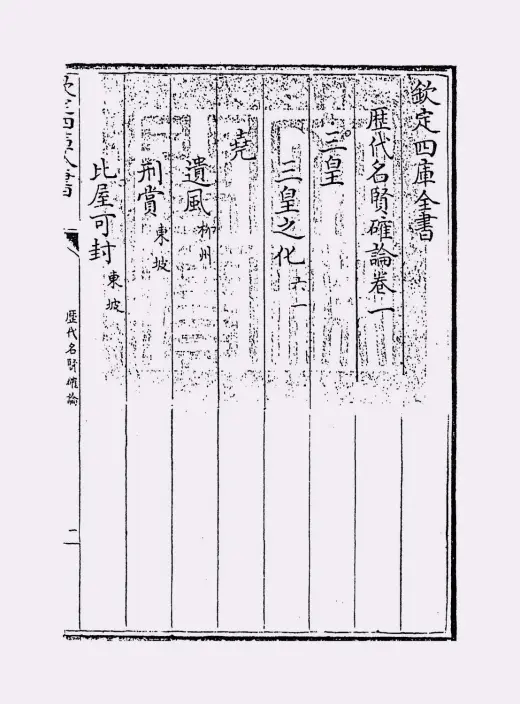 欽定四庫全書
歷代名賢確論卷一
三皇
三皇之化 六一
堯
遺風 柳州
刑賞 東坡
比屋可封 東坡
欽定四庫全書
歷代名賢確論
一